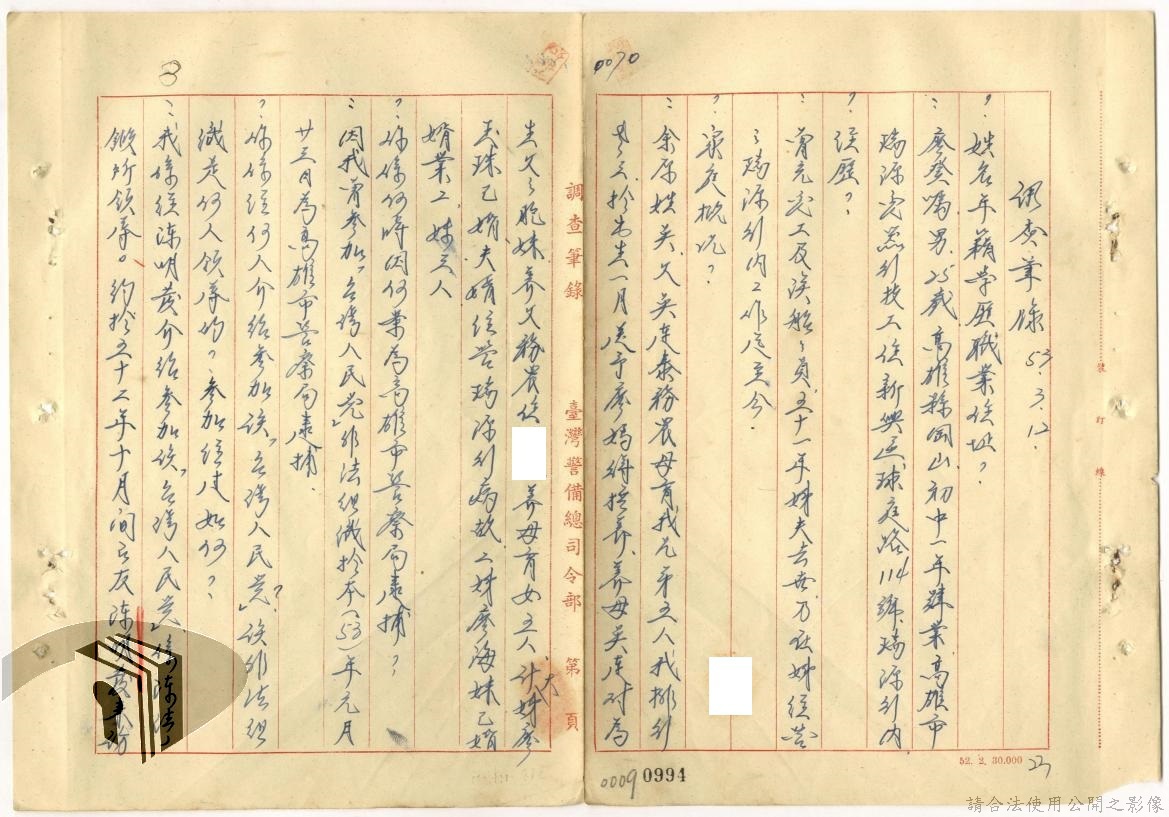 0070
調查筆錄 53.3.12.
？姓名年籍學歷職業住址？
：廖登 男 25歲 高雄縣岡山 初中一年肄業 高雄市
瑞源 行技工 住新興區球庭路114號瑞源行內
？經歷？
曾充 工及漁船船員 五十一年姊夫去世乃在姊經營
之瑞源行內工作迄至今．
？家庭概況？
：余原姓吳 父吳連泰務農 母育我兄弟五人 我排行
於出生一月 送予廖媽得撫養 養母吳連對為
生父之胞妹 養父務農 住 養母育女三人 大姊廖
玉珠已婚 夫婿經營瑞源行病故 二姊廖海妹已婚
婿業工 妹三人
？你係何時因何案為高雄市警察局逮捕？
：因我曾參加「台灣人民黨」非法組織於本（53）年元月
廿三日為高雄市警察局逮捕．
？你係經何人介紹參加該「台灣人民黨」？該非法組
織是何人領導的？參加經過如何？
：我係經陳明發介紹參加該「台灣人民黨」係陳
所領導。約於五十二年十月間 友陳明發
調查筆錄 臺灣警備總司令部 第 頁
52. 2. 30.000
0009 0994
請合法使用公開之影像